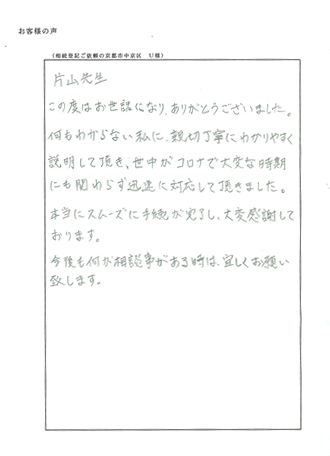 お客様の声
（相続登記ご依頼の京都市中京区　U様）
片山先生
この度はお世話になり、ありがとうございました。
何もわからない私に、親切丁寧にわかりやすく
説明して頂き、世中がコロナで大変な時期
にも関わらず迅速に対応して頂きました。
本当にスムーズに手続が完了し、大変感謝して
おります。
今後も何か相談事がある時は、宜しくお願い
致します。